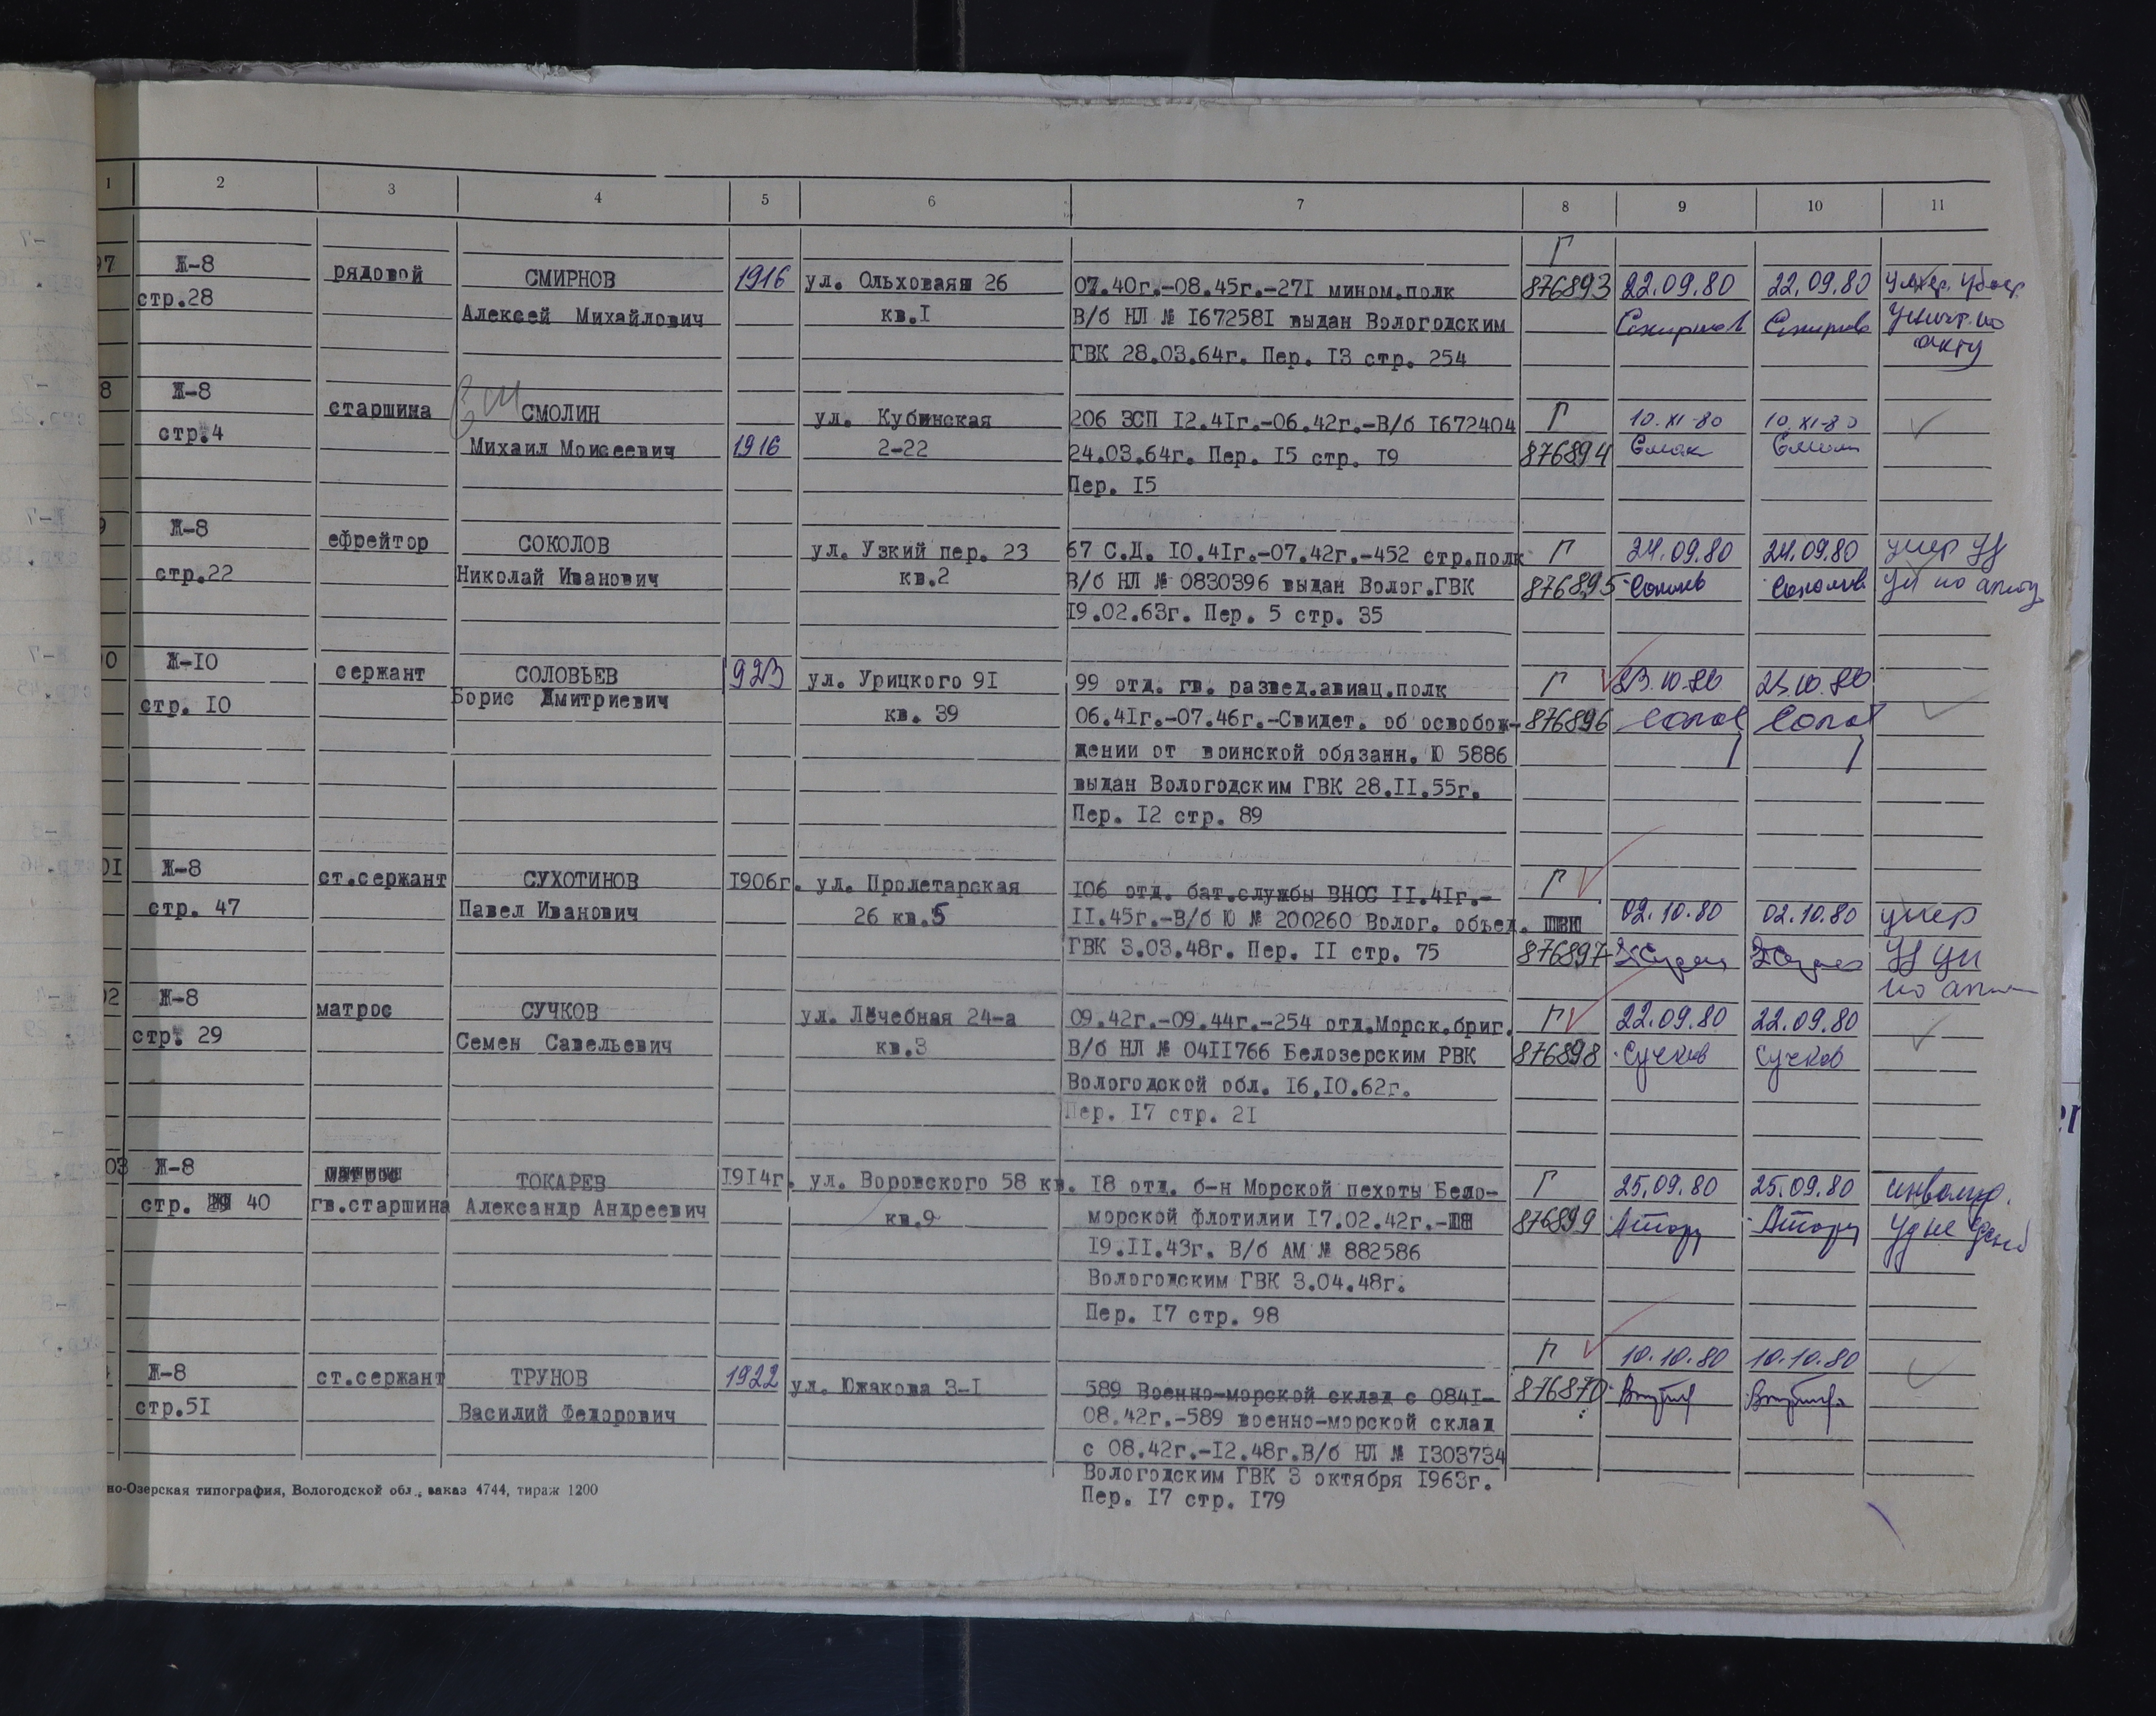 1 2 3 4 5 6 7 8 9 10 11
97 Ж-8 рядовой СМИРНОВ 1916 ул. Ольховаяя 26 07.40г.-08.45г.-271 мином.полк Г 876893 22.09.80 22.09.80 умер
стр.28 Алексей Михайлович кв.I В/б НЛ № I67258I выдан Вологодским Смирнов Смирнов Уничт. по
ГВК 28.03.64г. Пер. I3 стр. 254 акту
8 Ж-8 старшина СМОЛИН ул. Кубинская 206 ЗСП I2.4Iг.-06.42г.-В/б I672404 Г 10.XI-80 10.XI-80
стр.4 Михаил Моисеевич 1916 2-22 24.03.64г. Пер. I5 стр. I9 876894
Пер. I5
9 Ж-8 ефрейтор СОКОЛОВ ул. Узкий пер. 23 67 С.Д. I0.4Iг.-07.42г.-452 стр.полк Г 24.09.80 24.09.80 умер уд
стр.22 Николай Иванович кв.2 В/б НЛ № 0830396 выдан Волог.ГВК 876895 Соколов Соколов ун по акту
I9.02.63г. Пер. 5 стр. 35
00 Ж-I0 сержант СОЛОВЬЕВ 1923 ул. Урицкого 9I 99 отд. гв. развед.авиац.полк Г 23.10.80 23.10.80
стр. I0 Борис Дмитриевич кв. 39 06.4Iг.-07.46г.-Свидет. об освобож- 876896 Солов Солов
дении от воинской обязанн. Ю 5886
выдан Вологодским ГВК 28.II.55г.
Пер. I2 стр. 89
0I Ж-8 ст.сержант СУХОТИНОВ I906г. ул. Пролетарская I06 отд. бат.службы ВНОС II.4Iг.- Г
стр. 47 Павел Иванович 26 кв.5 II.45г.-В/б Ю № 200260 Волог. объед. 02.10.80 02.10.80 умер
ГВК 3.03.48г. Пер. II стр. 75 876897 уд ун
по акту
02 Ж-8 матрос СУЧКОВ ул. Лечебная 24-а 09.42г.-09.44г.-254 отд.Морск.бриг. Г 22.09.80 22.09.80
стр. 29 Семен Савельевич кв.3 В/б НЛ № 04II766 Белозерским РВК 876898 Сучков Сучков
Вологодской обл. I6.I0.62г.
Пер. I7 стр. 2I
03 Ж-8 матрос ТОКАРЕВ I9I4г. ул. Воровского 58 кв. I8 отд. б-н Морской пехоты Бело- Г 25.09.80 25.09.80 инвалид.
стр. 40 гв.старшина Александр Андреевич кв.9 морской флотилии I7.02.42г.- 876899 уд не
I9.II.43г. В/б АМ № 882586
Вологодским ГВК 3.04.48г.
Пер. I7 стр. 98
Ж-8 ст.сержант ТРУНОВ 1922 ул. Южакова 3-I 589 Военно-морской склад с 084I- Г 876870 10.10.80 10.10.80
стр.5I Василий Федорович 08.42г.-589 военно-морской склад
с 08.42г.-I2.48г.В/б НЛ № I303734
Вологодским ГВК 3 октября I963г.
Пер. I7 стр. I79
но-Озерская типография, Вологодской обл., заказ 4744, тираж 1200